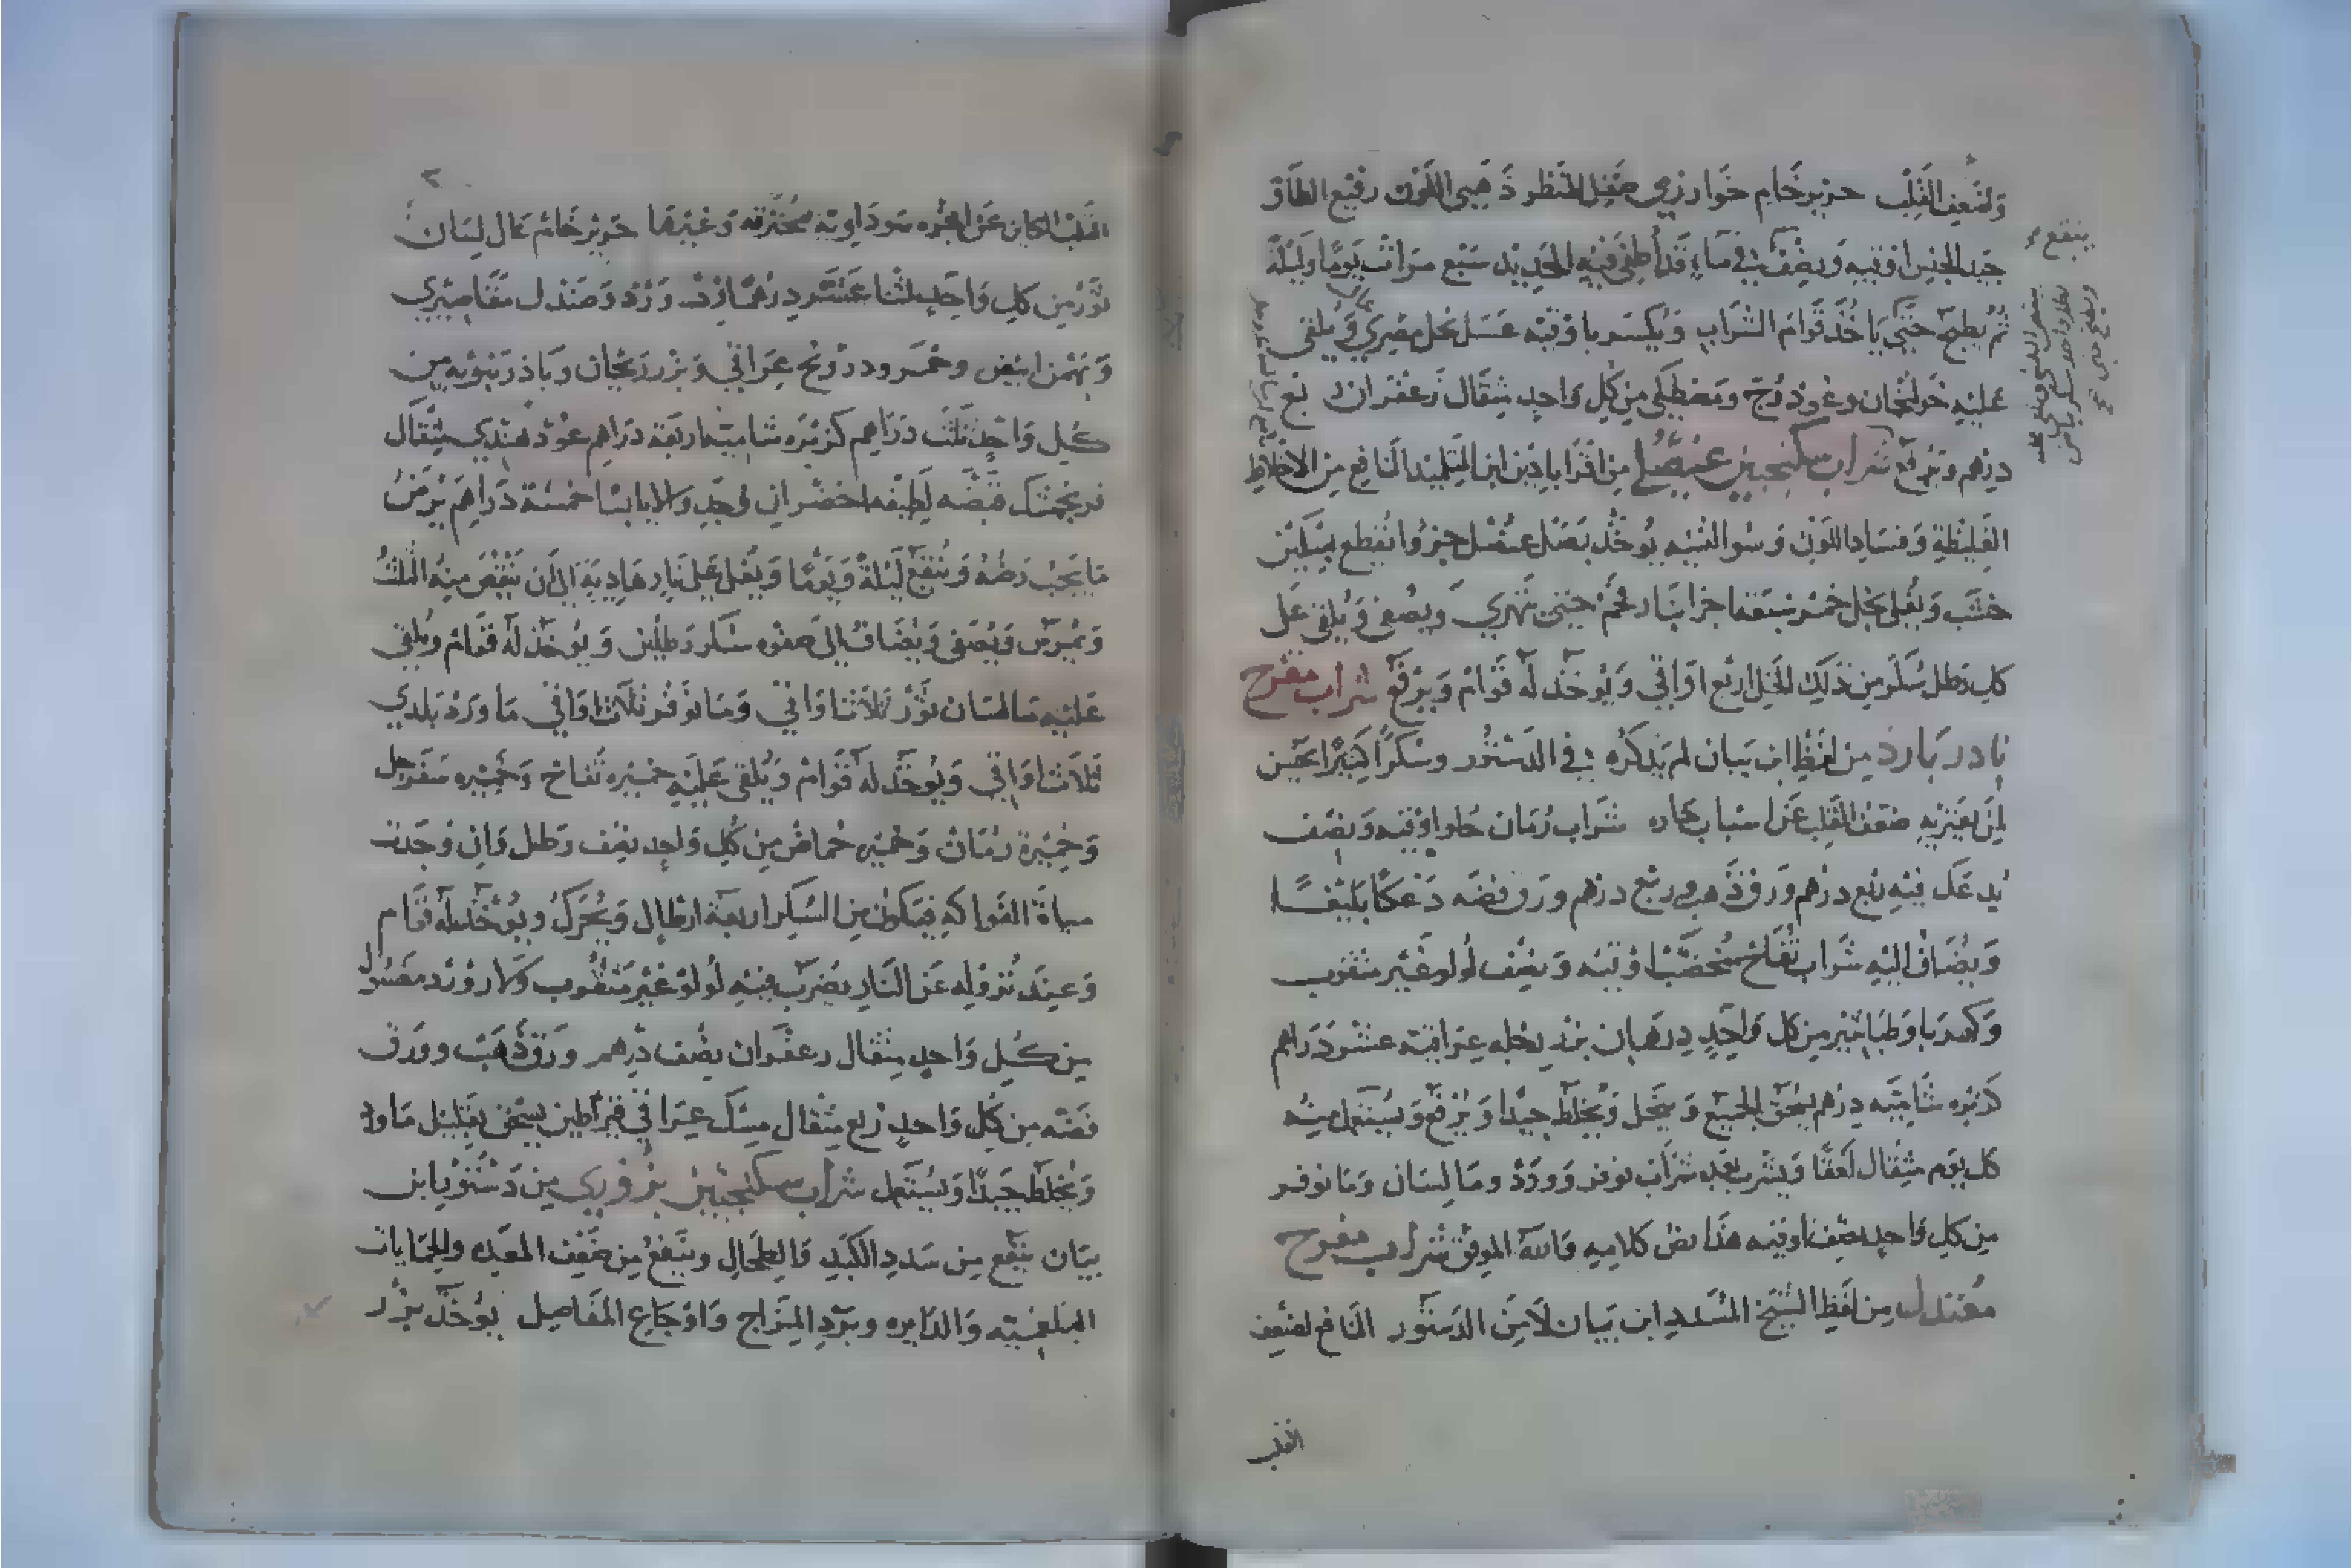 ولضعف القلب حرير خام خوارزمي صقيل المنظر ذهبي اللون رفيع الطاق
جيد الجنس اوقيه ونصف في ماء قد أطفئ فيه الحديد سبع مرات يوما وليلة
ثم يطبخ حتى ياخذ قوام الشراب ويكسر باوقيه عسل نحل مصري ويلقى
عليه خولنجان وعود وج ومصطكى من كل واحد مثقال زعفران ربع
درهم ويرفع شراب سكنجبين عنصلي من اقراباذين ابن التلميذ النافع من الاخلاط
الغليظة وفساد اللون وسوا القنيه يوخذ بصل عنصل جزوا يقطع بسكين
خشب ويغلى بخل خمر تسعة اجزا بنار فحم حتى يتهري ويصفى ويلقى على
كل رطل سكر من ذلك الخل اربع اواقي ويوخذ له قوام ويرفع شراب مفرح
نادر بارد من لفظ ابن بيان لم يذكره في الدستور وشكر كثيرا عجيب
لمن يعتريه ضعف القلب عن اسباب حاره شراب رمان حلو اوقيه ونصف
يدعك فيه ربع درهم ورق ذهب وربع درهم ورق فضه دعكا بليغا
ويضاف اليه شراب تفاح اوقيه ونصف لولو غير مثقوب
وكهربا وطباشير من كل واحد درهمان بزر رجله عراقية عشر دراهم
كزبره شاميه درهم يسحق الجميع وينخل ويخلط جيدا ويرفع ويستعمل منه
كل يوم مثقال لعقا ويشرب بعده شراب نوفر وورد وما لسان وما نوفر
من كل واحد نصف اوقيه هذا نص كلامه والله الموفق شراب مفرح
معتدل من لفظ الشيخ السديد ابن بيان لا من الدستور النافع لضعف
القلب
ينفع
القلب الكاين عن ابخره سوداويه محترقه وغيرها حرير خام خال لسان
ثور من كل واحد اثنا عشر درهما زر ورد وصندل مقاصيري
وبهمن ابيض وحمر ودرونج عراقي وبزر ريحان وباذرنبويه من
كل واحد ثلث دراهم كزبره شاميه اربعة دراهم عود هندي مثقال
فرنجمشك قبضه لطيفه اخضر ان وجد والا يابسا خمسة دراهم يرض
ما يجب رضه وينقع ليلة ويوما ويغلى على نار هادية الى ان ينقص منه الثلث
ويمرس ويصفى ويضاف الى صفوه سكر رطلين ويوخذ له قوام ويلقى
عليه ما لسان ثور ثلاث اواقي وما نوفر ثلاث اواقي ما ورد بلدي
ثلاث اواقي ويوخذ له قوام ويلقى عليه خميره تفاح وخميره سفرجل
وخميرة رمان وخميره حماض من كل واحد نصف رطل وان وجدت
مياة الفواكه فيكون من السكر اربعة ارطال ويحرك ويوخذ له قوام
وعند نزوله عن النار يضرب فيه لولو غير مثقوب ولازورد مغسول
من كل واحد مثقال زعفران نصف درهم ورق ذهب وورق
فضه من كل واحد ربع مثقال مسك عراقي قيراطين يسحق بقليل ما ورد
ويخلط جيدا ويستعمل شراب سكنجبين بزوري من دستور ابن
بيان ينفع من سدد الكبد والطحال وينفع من ضعف المعده والحمايات
البلغميه والدايره وبرد المزاج واوجاع المفاصل يوخذ بزر